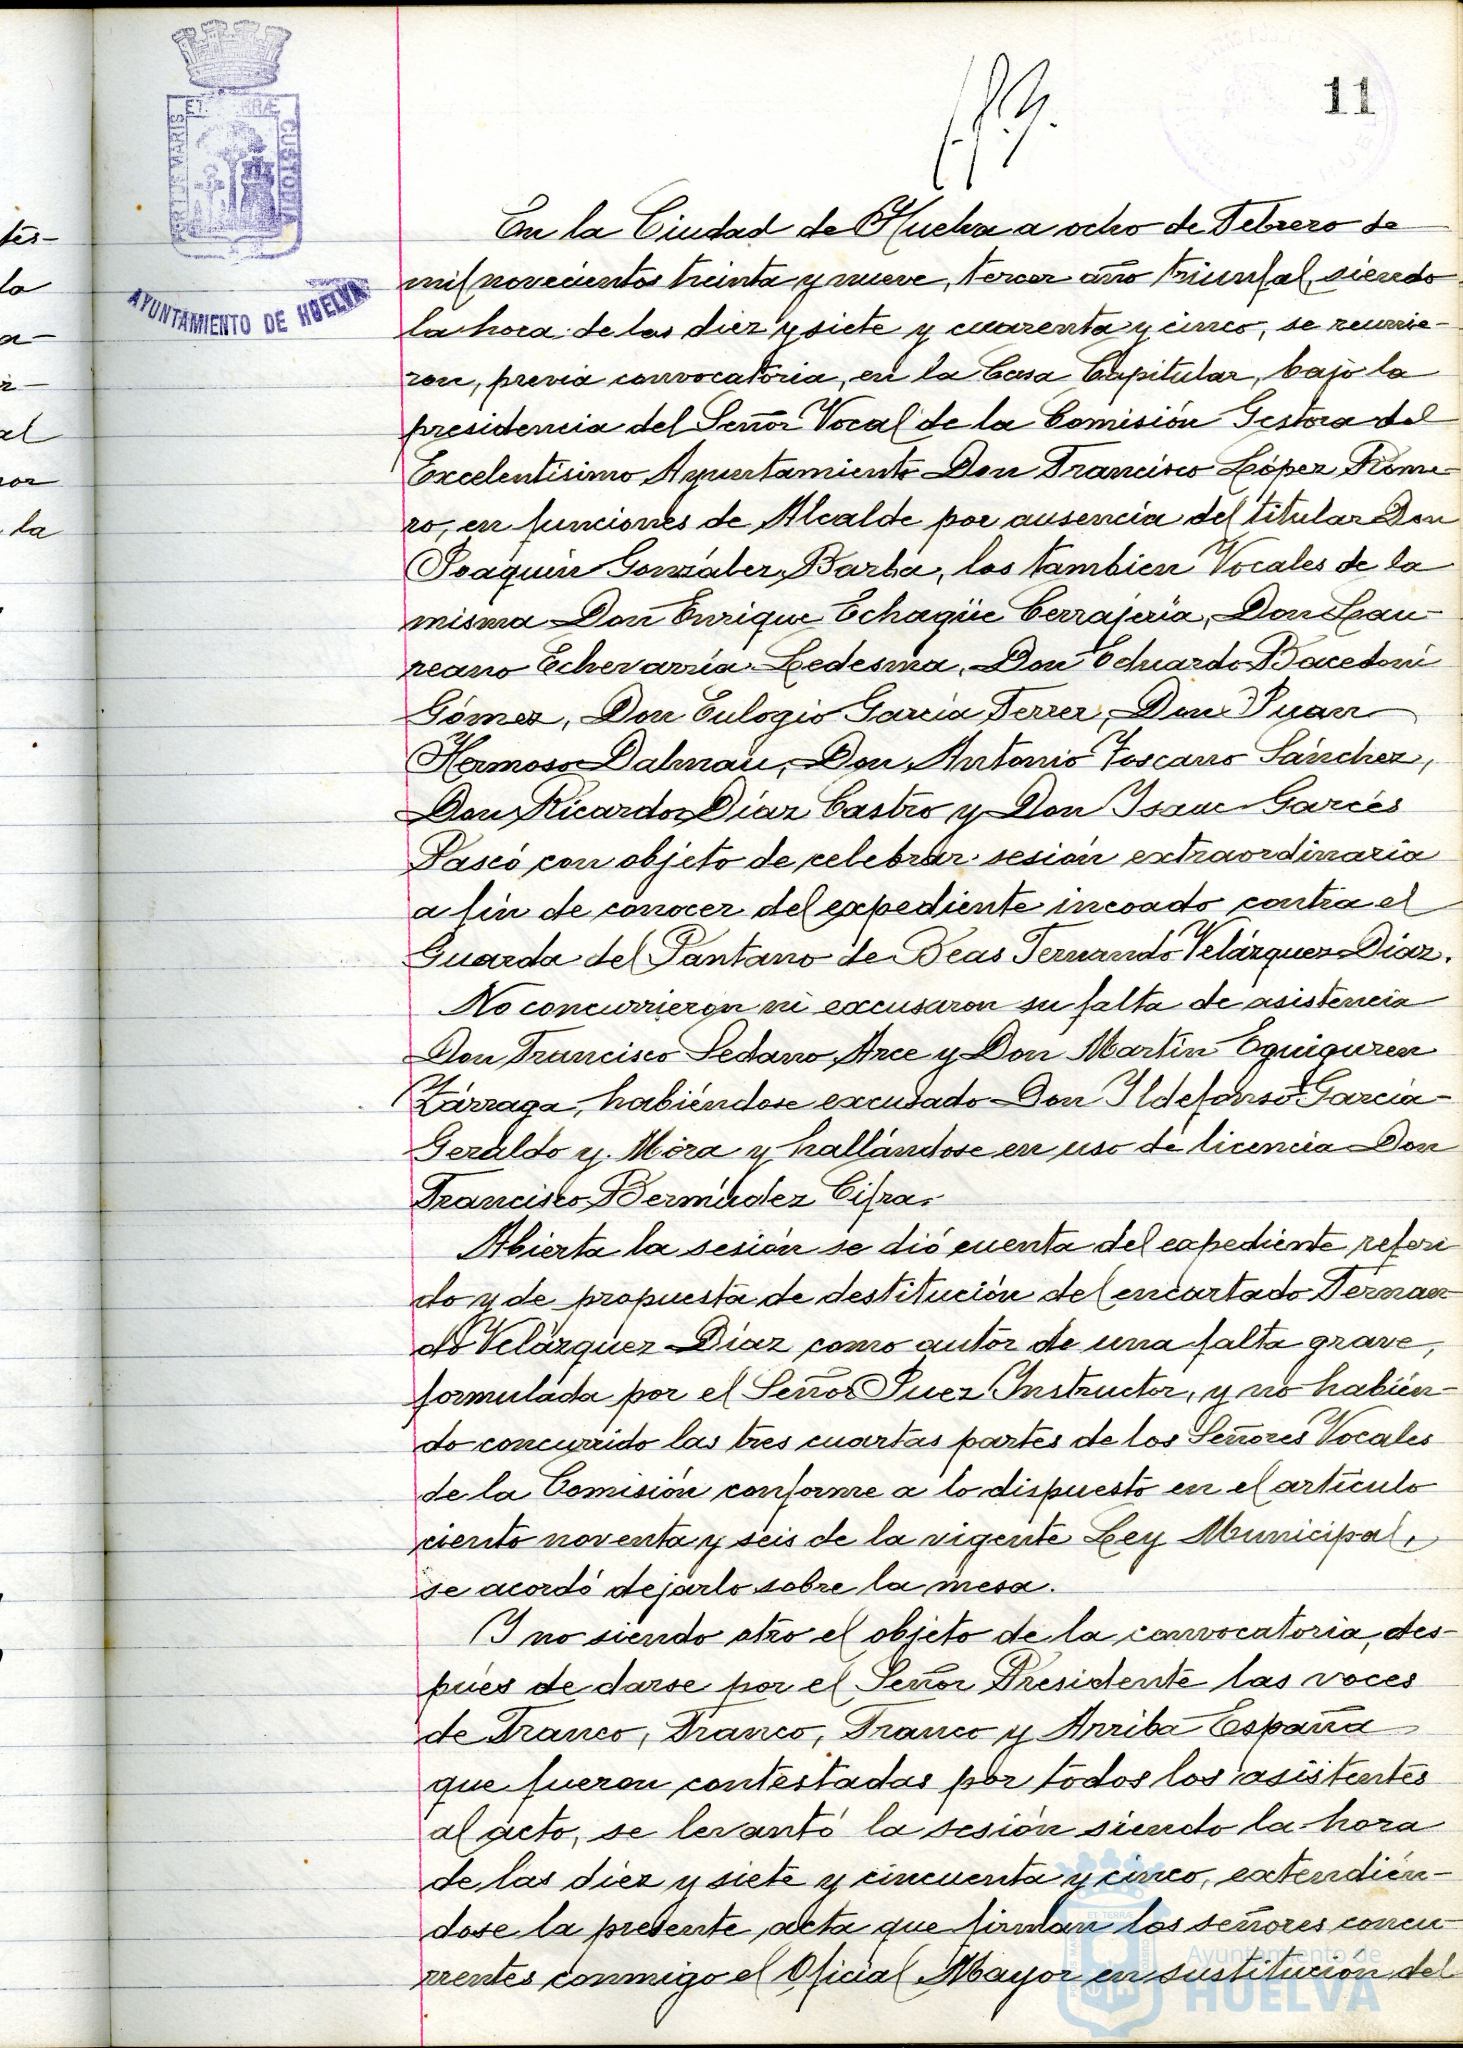 11
PORTUS MARIS ET TERRÆ CUSTODIA
AYUNTAMIENTO DE HUELVA
En la Ciudad de Huelva a ocho de Febrero de
mil novecientos treinta y nueve, tercer año triunfal, siendo
la hora de las diez y siete y cuarenta y cinco, se reunie-
ron, previa convocatoria, en la Casa Capitular, bajo la
presidencia del Señor Vocal de la Comisión Gestora del
Excelentísimo Ayuntamiento Don Francisco López Rome-
ro, en funciones de Alcalde por ausencia del titular Don
Joaquín González Barba, los tambien Vocales de la
misma Don Enrique Echagüe Cerrajería, Don Lau-
reano Echevarría Ledesma, Don Eduardo Bacedoni
Gómez, Don Eulogio García Ferrer, Don Juan
Hermoso Dalmau, Don Antonio Toscano Sánchez,
Don Ricardo Díaz Castro y Don Isaac Garcés
Pascó con objeto de celebrar sesión extraordinaria
a fin de conocer del expediente incoado contra el
Guarda del Pantano de Beas Fernando Velázquez Díaz.
No concurrieron ni excusaron su falta de asistencia
Don Francisco Sedano Arce y Don Martín Eguiguren
Zárraga, habiéndose excusado Don Ildefonso García-
Geraldo y Mora y hallándose en uso de licencia Don
Francisco Bermúdez Cifra.
Abierta la sesión se dió cuenta del expediente referi
do y de propuesta de destitución del encartado Fernan-
do Velázquez Díaz como autor de una falta grave,
formulada por el Señor Juez Instructor, y no habién-
do concurrido las tres cuartas partes de los Señores Vocales
de la Comisión conforme a lo dispuesto en el artículo
ciento noventa y seis de la vigente Ley Municipal,
se acordó dejarlo sobre la mesa.
Y no siendo otro el objeto de la convocatoria, des-
pués de darse por el Señor Presidente las voces
de Franco, Franco, Franco y Arriba España
que fueron contestadas por todos los asistentes
al acto, se levantó la sesión siendo la hora
de las diez y siete y cincuenta y cinco, extendién-
dose la presente acta que firman los señores concu-
rrentes conmigo el Oficial Mayor en sustitución del
Ayuntamiento de
HUELVA